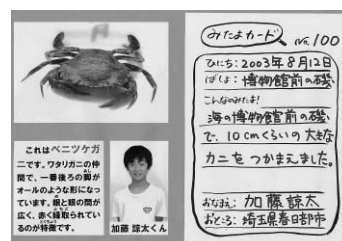 これはベニツケガ
ニです。ワタリガニの仲
間で、一番後ろの脚が
オールのような形になっ
ています。眼と眼の間が
広く、赤く縁取られてい
るのが特徴です。
加藤 諒太くん
みたよカード No.100
ひにち:2003年8月12日
ばしょ:博物館前の磯
こんなのみたよ!
海の博物館前の磯
で、10cmくらいの大きな
カニをつかまえました。
おなまえ:加藤諒太
おところ:埼玉県春日部市